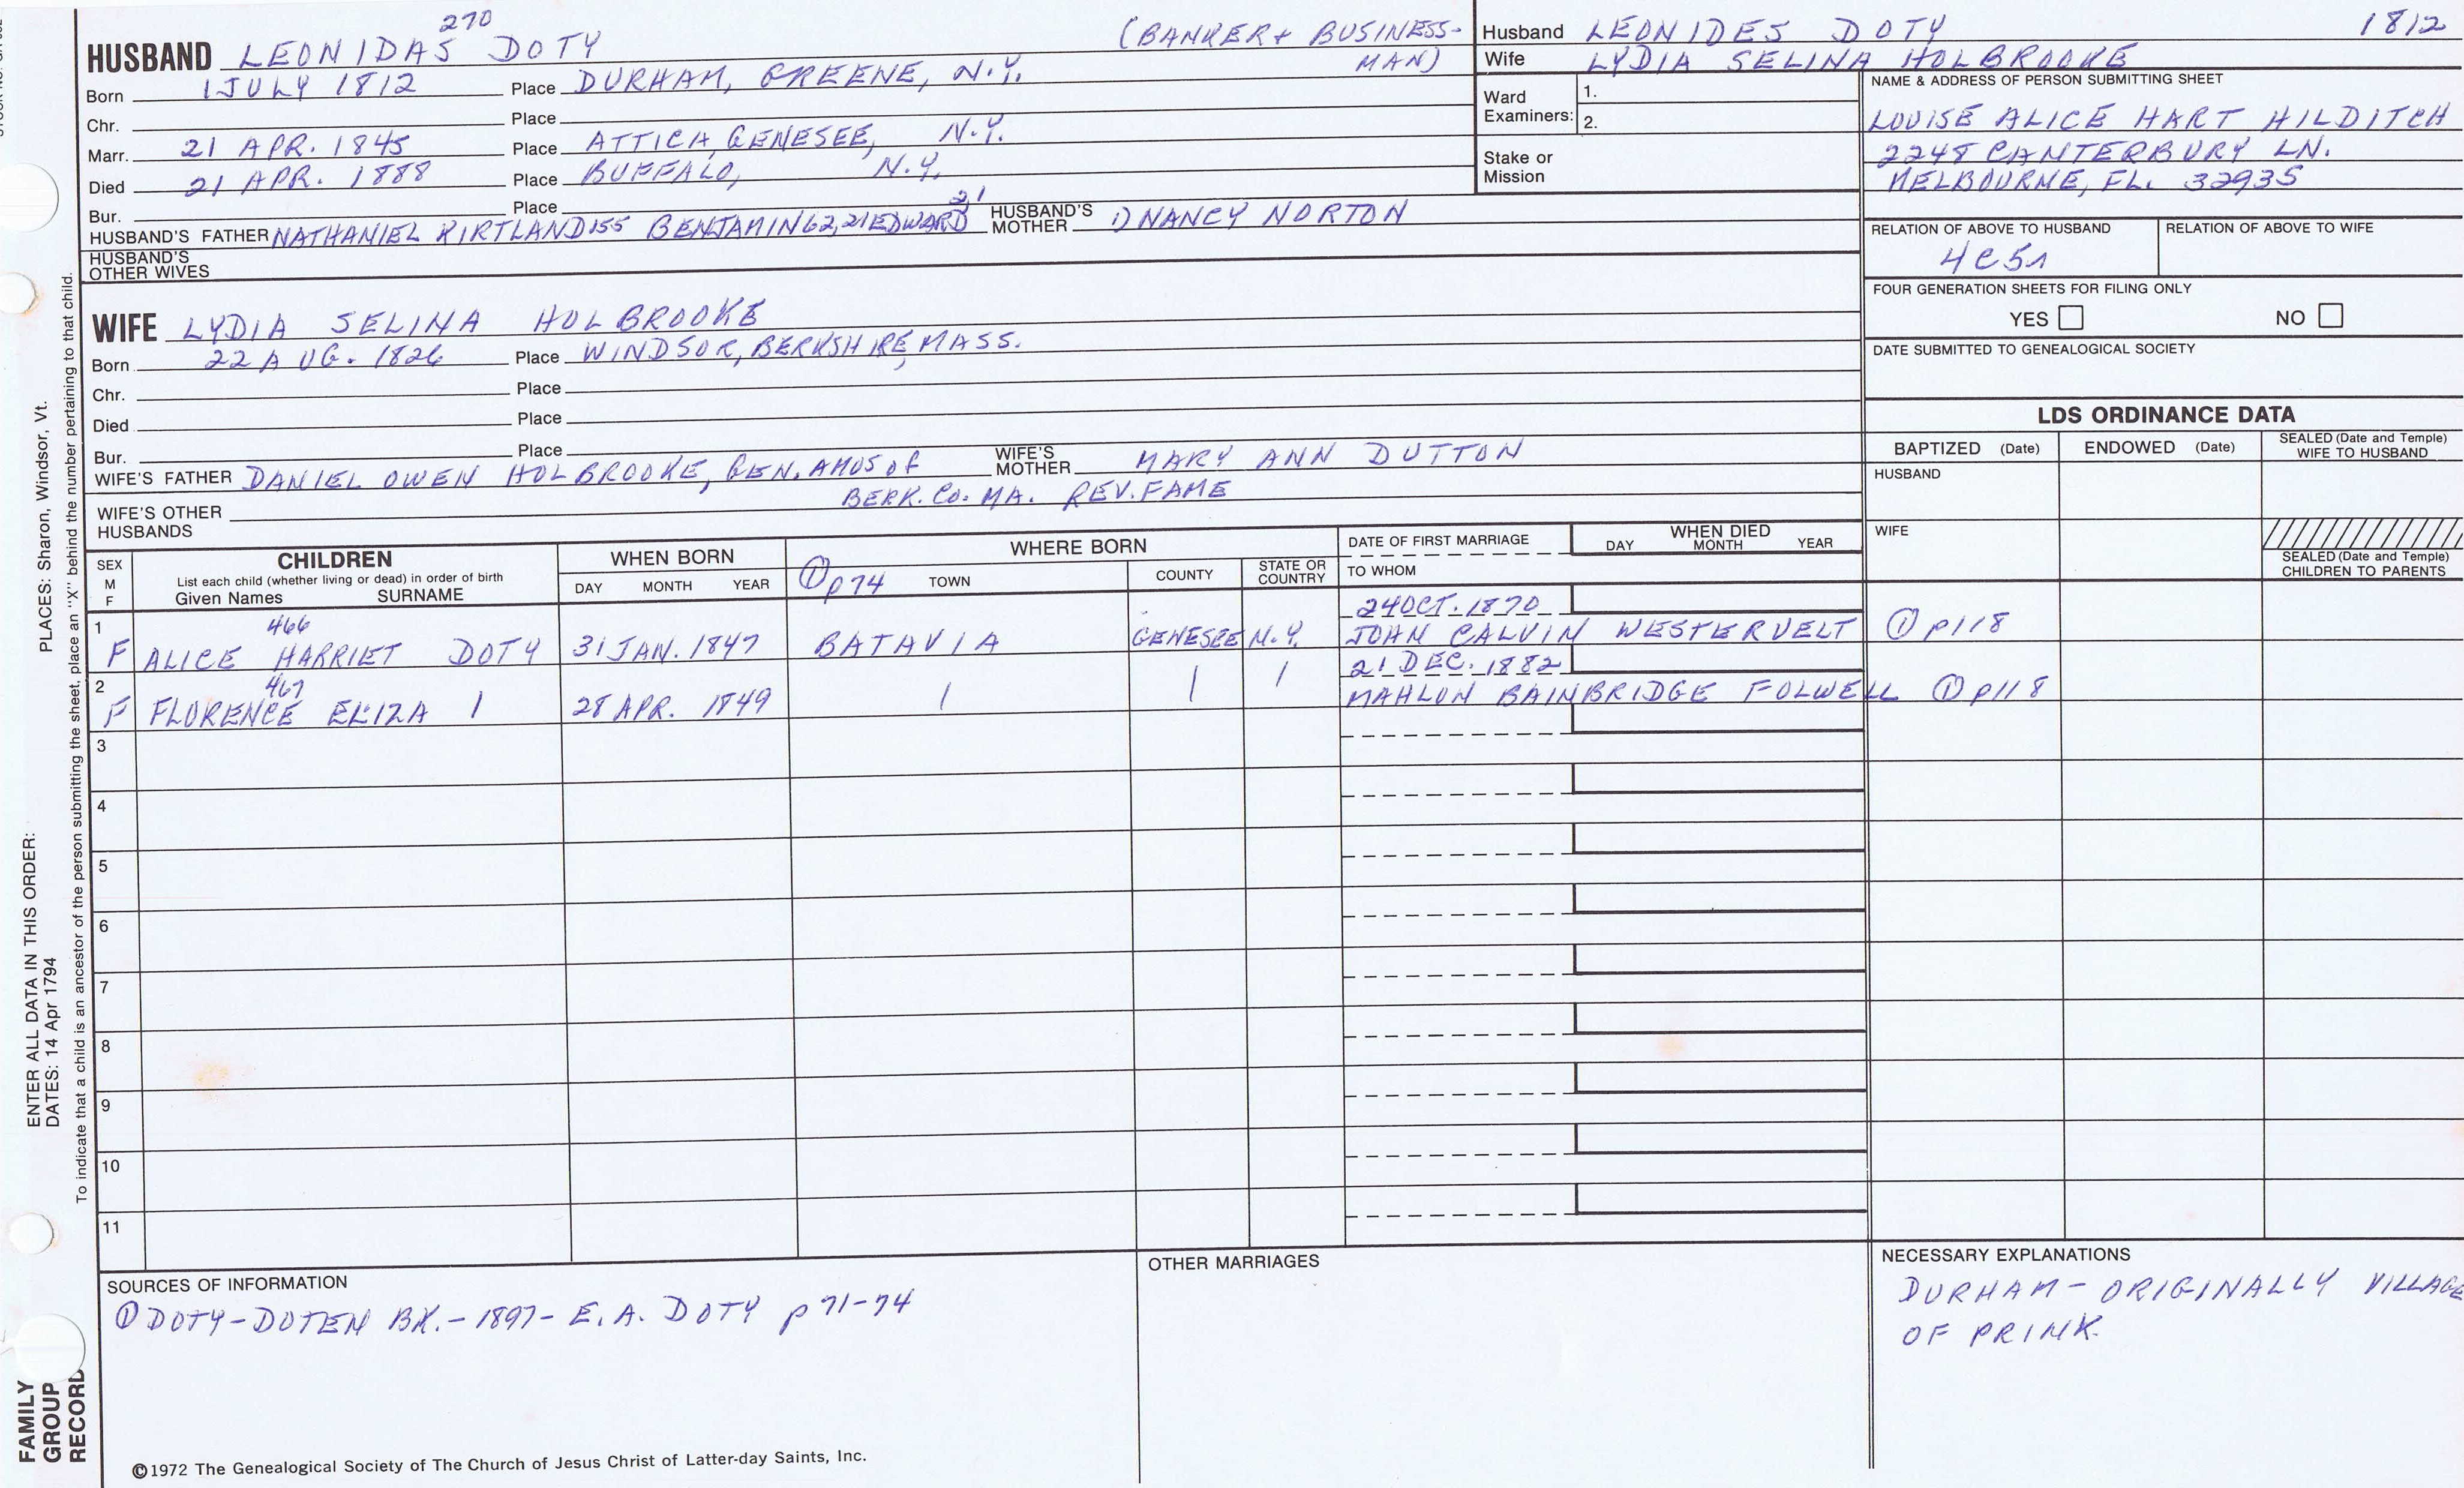 270
HUSBAND LEONIDAS DOTY (BANKER + BUSINESS-
MAN)
Born 1 JULY 1812 Place DURHAM, GREENE, N.Y.
Chr. Place
Marr. 21 APR. 1845 Place ATTICA, GENESEE, N.Y.
Died 21 APR. 1888 Place BUFFALO, N.Y.
Bur. Place
HUSBAND'S FATHER NATHANIEL KIRTLAND155 BENJAMIN62,21EDWARD 2,1 HUSBAND'S MOTHER 1) NANCY NORTON
HUSBAND'S OTHER WIVES
WIFE LYDIA SELINA HOLBROOKE
Born 22 AUG. 1826 Place WINDSOR, BERKSHIRE, MASS.
Chr. Place
Died Place
Bur. Place
WIFE'S FATHER DANIEL OWEN HOLBROOKE, GEN. AMOS of WIFE'S MOTHER MARY ANN DUTTON
BERK. CO. MA. REV. FAME
WIFE'S OTHER HUSBANDS
Husband LEONIDES DOTY 1812
Wife LYDIA SELINA HOLBROOKE
Ward Examiners: 1.
2.
Stake or Mission
NAME & ADDRESS OF PERSON SUBMITTING SHEET
LOUISE ALICE HART HILDITCH
2248 CANTERBURY LN.
MELBOURNE, FL. 32935
RELATION OF ABOVE TO HUSBAND RELATION OF ABOVE TO WIFE
4C5r
FOUR GENERATION SHEETS FOR FILING ONLY
YES NO
DATE SUBMITTED TO GENEALOGICAL SOCIETY
LDS ORDINANCE DATA
BAPTIZED (Date) ENDOWED (Date) SEALED (Date and Temple) WIFE TO HUSBAND
HUSBAND
WIFE
SEALED (Date and Temple) CHILDREN TO PARENTS
SEX M F
CHILDREN
List each child (whether living or dead) in order of birth
Given Names SURNAME
WHEN BORN
DAY MONTH YEAR
WHERE BORN
① p74 TOWN COUNTY STATE OR COUNTRY
DATE OF FIRST MARRIAGE
TO WHOM
WHEN DIED
DAY MONTH YEAR
1 466 24 OCT. 1870
F ALICE HARRIET DOTY 31 JAN. 1847 BATAVIA GENESEE N.Y. JOHN CALVIN WESTERVELT ① p118
2 467 21 DEC. 1882
F FLORENCE ELIZA 28 APR. 1849 MAHLON BAINBRIDGE FOLWELL ① p118
3
4
5
6
7
8
9
10
11
SOURCES OF INFORMATION
① DOTY-DOTEN BK.-1897- E.A. DOTY p 71-74
OTHER MARRIAGES
NECESSARY EXPLANATIONS
DURHAM - ORIGINALLY VILLAGE
OF PRINK.
©1972 The Genealogical Society of The Church of Jesus Christ of Latter-day Saints, Inc.
FAMILY
GROUP
RECORD
ENTER ALL DATA IN THIS ORDER:
DATES: 14 Apr 1794 PLACES: Sharon, Windsor, Vt.
To indicate that a child is an ancestor of the person submitting the sheet, place an "X" behind the number pertaining to that child.